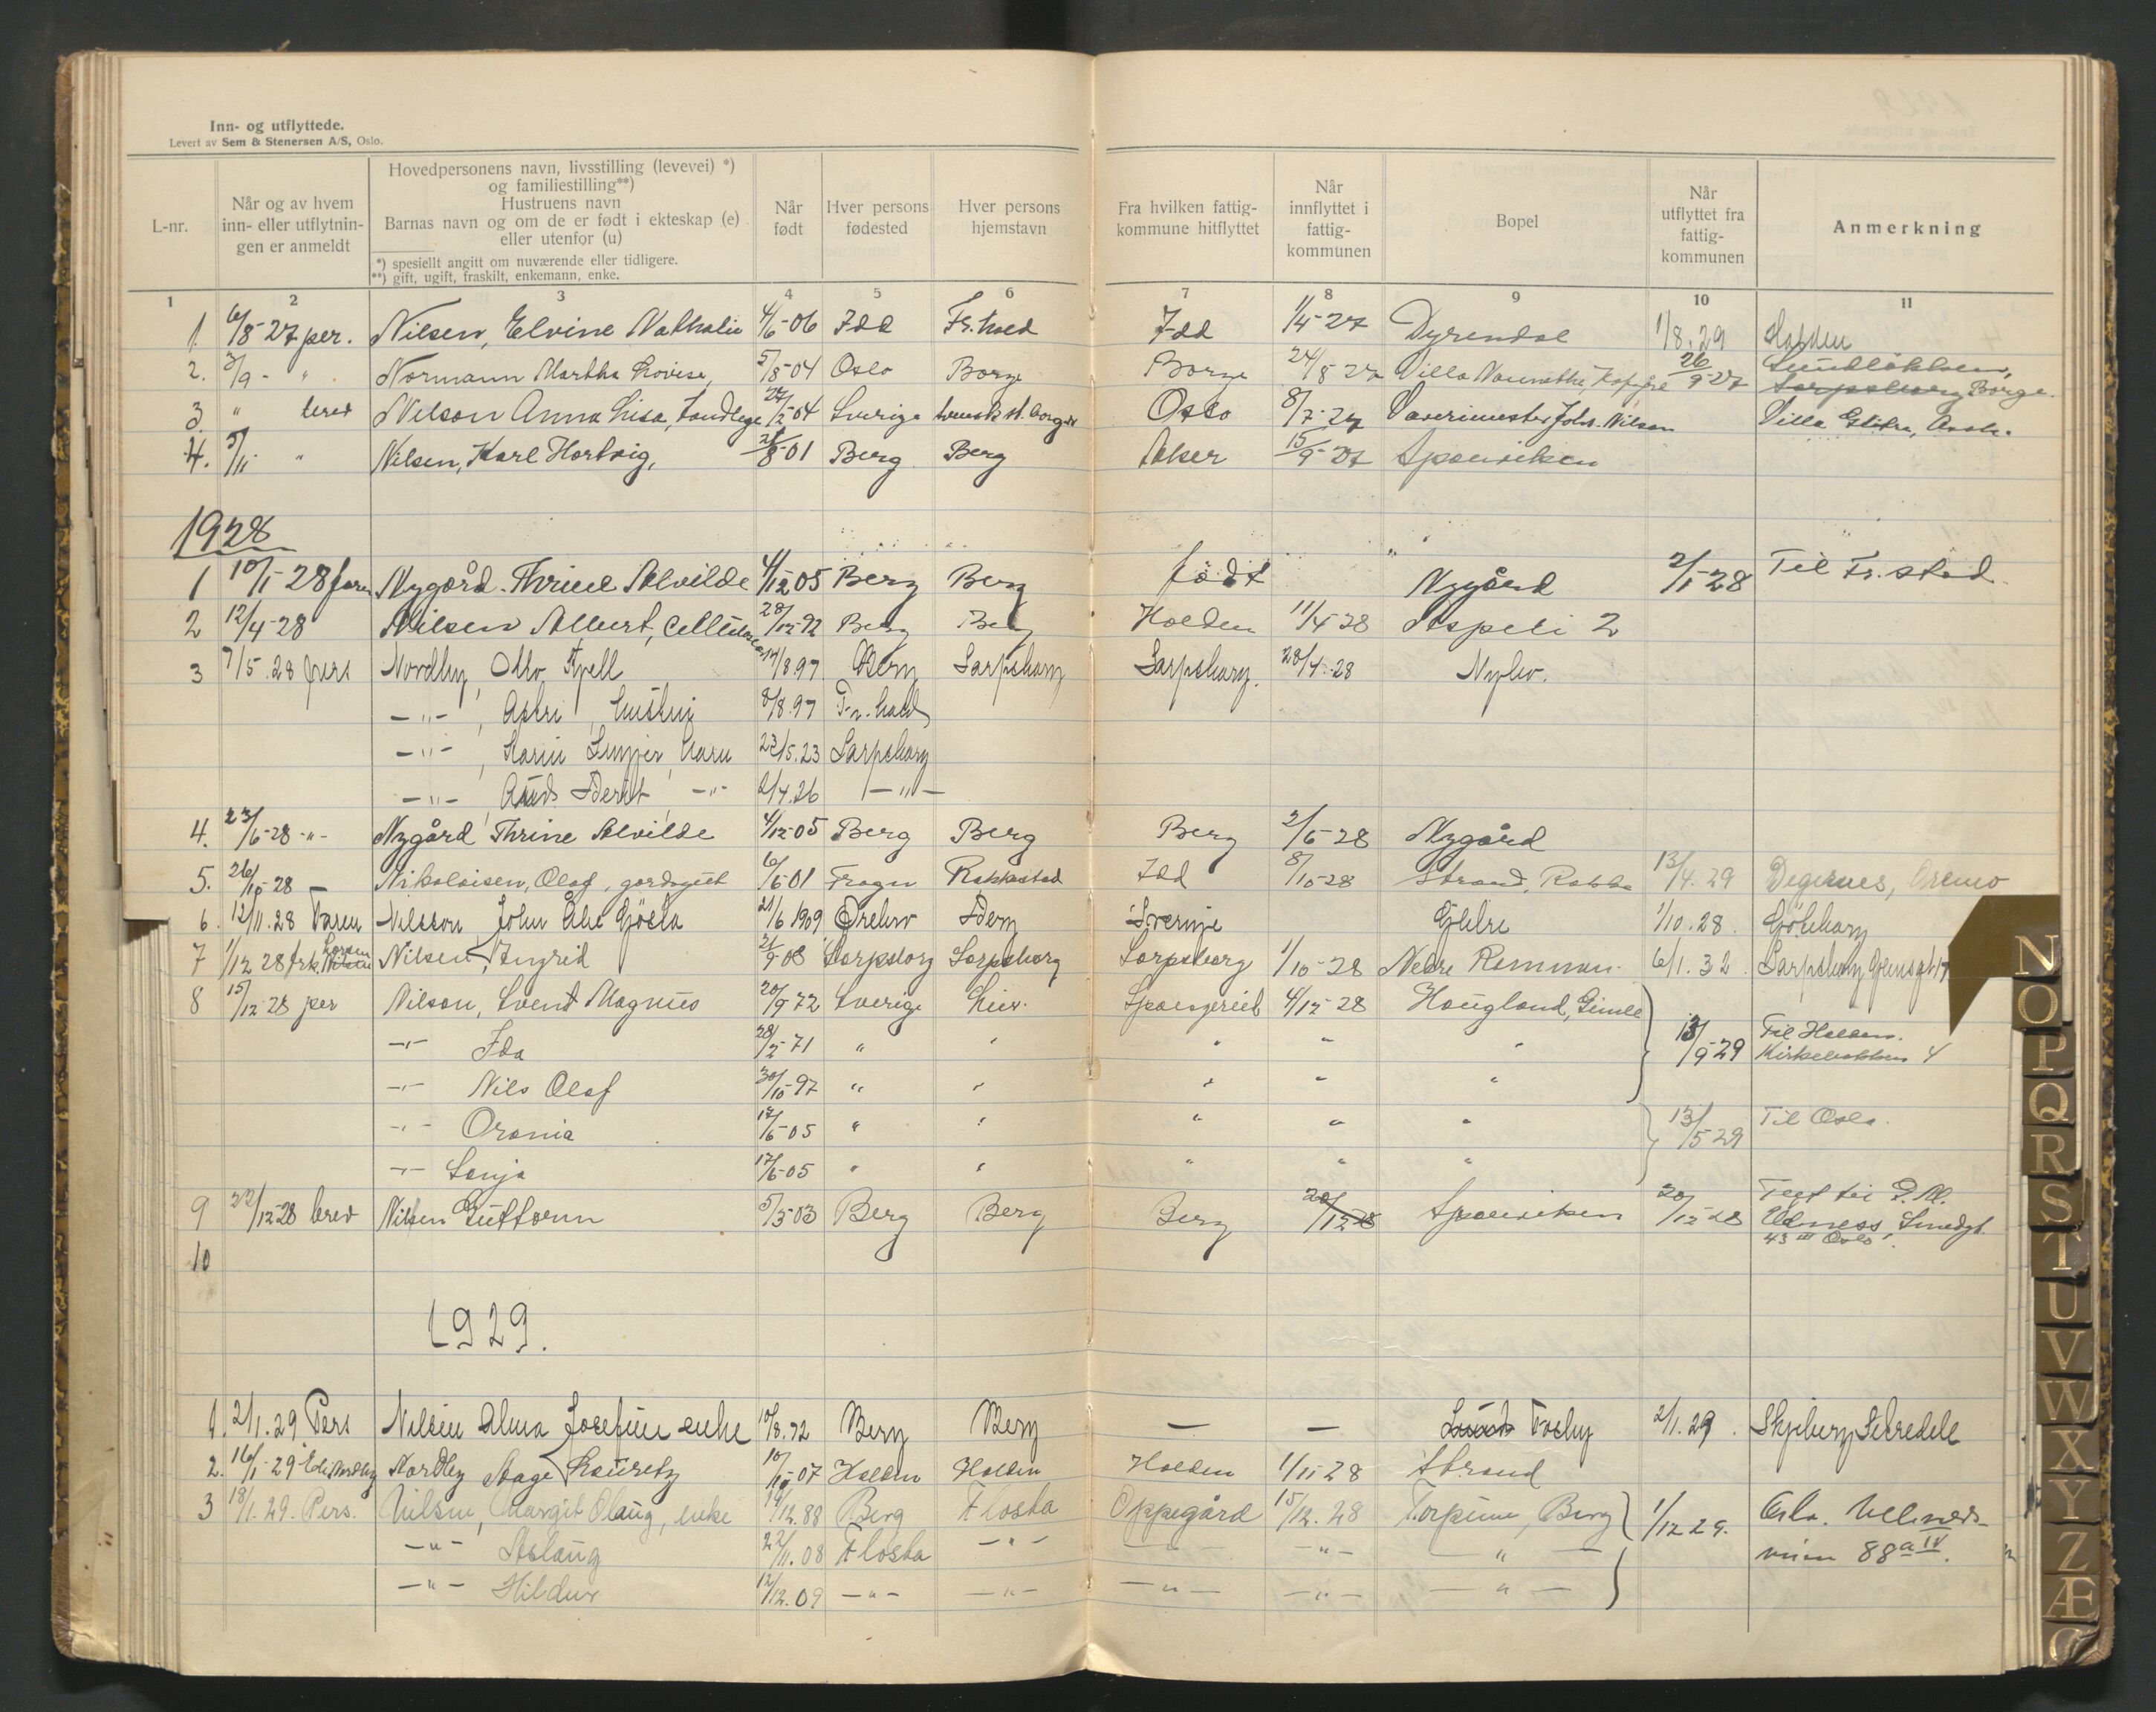 Inn- og utflyttede.
Levert av Sem & Stenersen A/S, Oslo.
L-nr.
Når og av hvem inn- eller utflytnin- gen er anmeldt
Hovedpersonens navn, livsstilling (levevei) *)
og familiestilling**)
Hustruens navn
Barnas navn og om de er født i ekteskap (e)
eller utenfor (u)
*) spesiellt angitt om nuværende eller tidligere.
**) gift, ugift, fraskilt, enkemann, enke.
Når født
Hver persons fødested
Hver persons hjemstavn
Fra hvilken fattig- kommune hitflyttet
Når innflyttet i fattig- kommunen
Bopel
Når utflyttet fra fattig- kommunen
Anmerkning
1 2 3 4 5 6 7 8 9 10 11
1 6/8-27 per. Nilsen, Elvine Nathalie 4/6-06 Idd Fr.hald Idd 1/4-27 Dyrendal 1/8.29 Halden
2. 3/9- " Normann Martha Lovise, 5/8-04 Oslo Borge Borge 24/8-27 Villa 26/9-27 Sarpsborg Borge.
3. " brev Nilson Anna Lisa, Tandlege 04 Sverige svensk st.borger Oslo 8/7-27 Joh. Nilson Villa
4. 5/11- " Nilsen, Karl Hartvig, 01 Berg Berg Aker 15/9-27 Sponviken
1928
1 10/1-28 Nygård Thrine Alvilde 4/12 05 Berg Berg født Nygård 2/1-28 Til Fr.stad
2 12/4-28 Nilsen Albert, 28/12-92 Berg Berg Halden 11/4-28 Aspeli 2
3 7/5.28 pers Nordby, Otto Kjell 14/8.97 Berg Sarpsborg Sarpsborg. 28/4.-28 Nybo.
-"-, Astri, hustru 8/8.97 Fr.hald
-"-, Karin, barn 23/5.23 Sarpsborg
-"-, Berit -"- 2/4.26 -"-
4. 23/6-28 -"- Nygård Thrine Alvilde 4/12-05 Berg Berg Berg 2/6-28 Nygård
5. 26/10-28 — Nikolaisen, Olaf, gårdsgut 6/6-01 Frogn Rakkestad Idd 8/10-28 Strand, Rokke 13/4.29 Degernes,
6. 12/11.28 Nilsson, John Åke Gösta 21/6 1909 Örebro Berg Sverige 1/10.28. Göteborg
7 1/12 28 frk. Nilsen, Ingrid 08 Sarpsborg Sarpsborg Sarpsborg 1/10-28 Nedre Remmen 6/1.32. Sarpsborg
8 15/12-28 per Nilson, Svent Magnus 20/9 72 Sverige 4/12-28 Haugland, Gimle
-"- Ida 28/2-71 " " " " " 13/9-29 Til Halden.
Kirkebakken 4
-"- Nils Olaf 30/10-97 " " " " "
-"- Orania 17/6-05 " " " " " 13/5 29 Til Oslo.
-"- Sonja 17/6-05 " " " " "
9 22/12-28 brev Nilsen Guttorm 5/3-03 Berg Berg Berg 20/12-28 Sponviken 20/12-28
Smedgt.
43 III Oslo.
10
1929.
1. 2/1.29 Pers Nilsen Alma Josefine enke 10/8.72 Berg Berg — — Torby 2/1.29. Skjeberg
2. 16/1-29 Nordby Aage Lauretz 10/10-07 Halden Halden Halden 1/11-28 Strand
3 18/1.29. Pers. Nilsen, Margit Olaug, enke 19/12.88 Berg Flosta Oppegård 15/12.28 Torpum, Berg 1/12 29. Oslo. Ullevåls-
-"- Aslaug 22/11.08 Flosta -"- -"- -"- -"- veien 88a IV.
-"- Hildur 12/12.09 -"- -"- -"- -"- -"-
N
O
P
Q
R
S
T
U
V
W
X
Y
Z
Æ